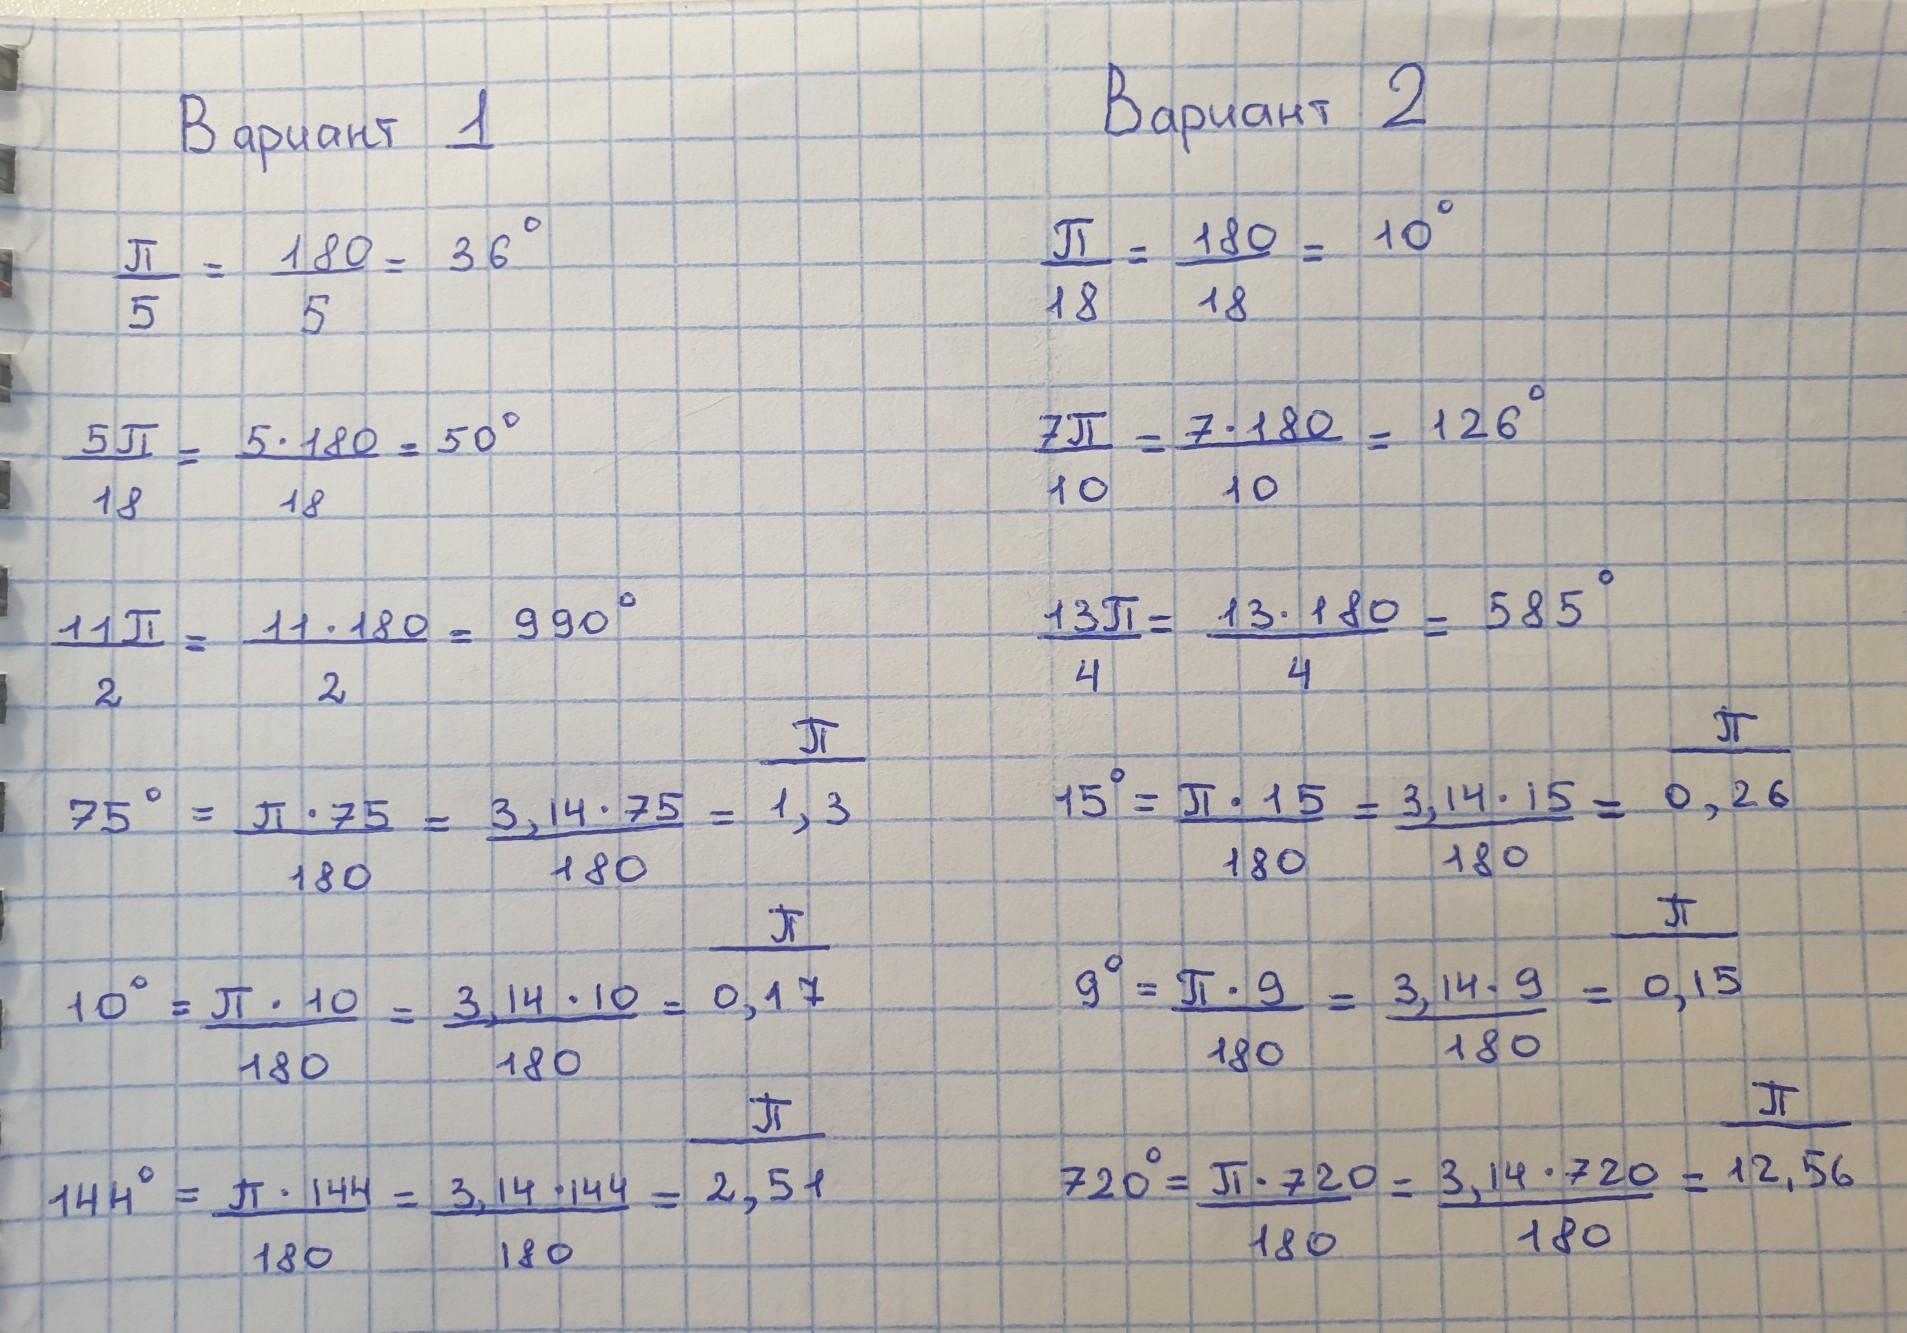 Вариант 1
π/5 = 180/5 = 36°
5π/18 = 5·180/18 = 50°
11π/2 = 11·180/2 = 990°
75° = π·75/180 = 3,14·75/180 = π/1,3
10° = π·10/180 = 3,14·10/180 = π/0,17
144° = π·144/180 = 3,14·144/180 = π/2,51
Вариант 2
π/18 = 180/18 = 10°
7π/10 = 7·180/10 = 126°
13π/4 = 13·180/4 = 585°
15° = π·15/180 = 3,14·15/180 = π/0,26
9° = π·9/180 = 3,14·9/180 = π/0,15
720° = π·720/180 = 3,14·720/180 = π/12,56